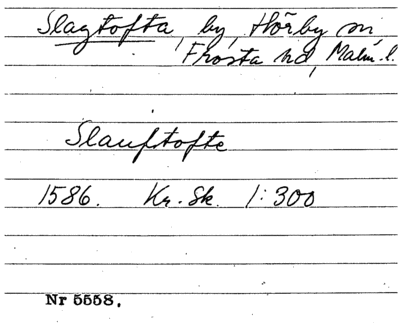 Slagtofta, by, Hörby sn
Frosta hd, Malm.l.
Slauftofte
1586. Kr. Sk. 1:300
Nr 5558.